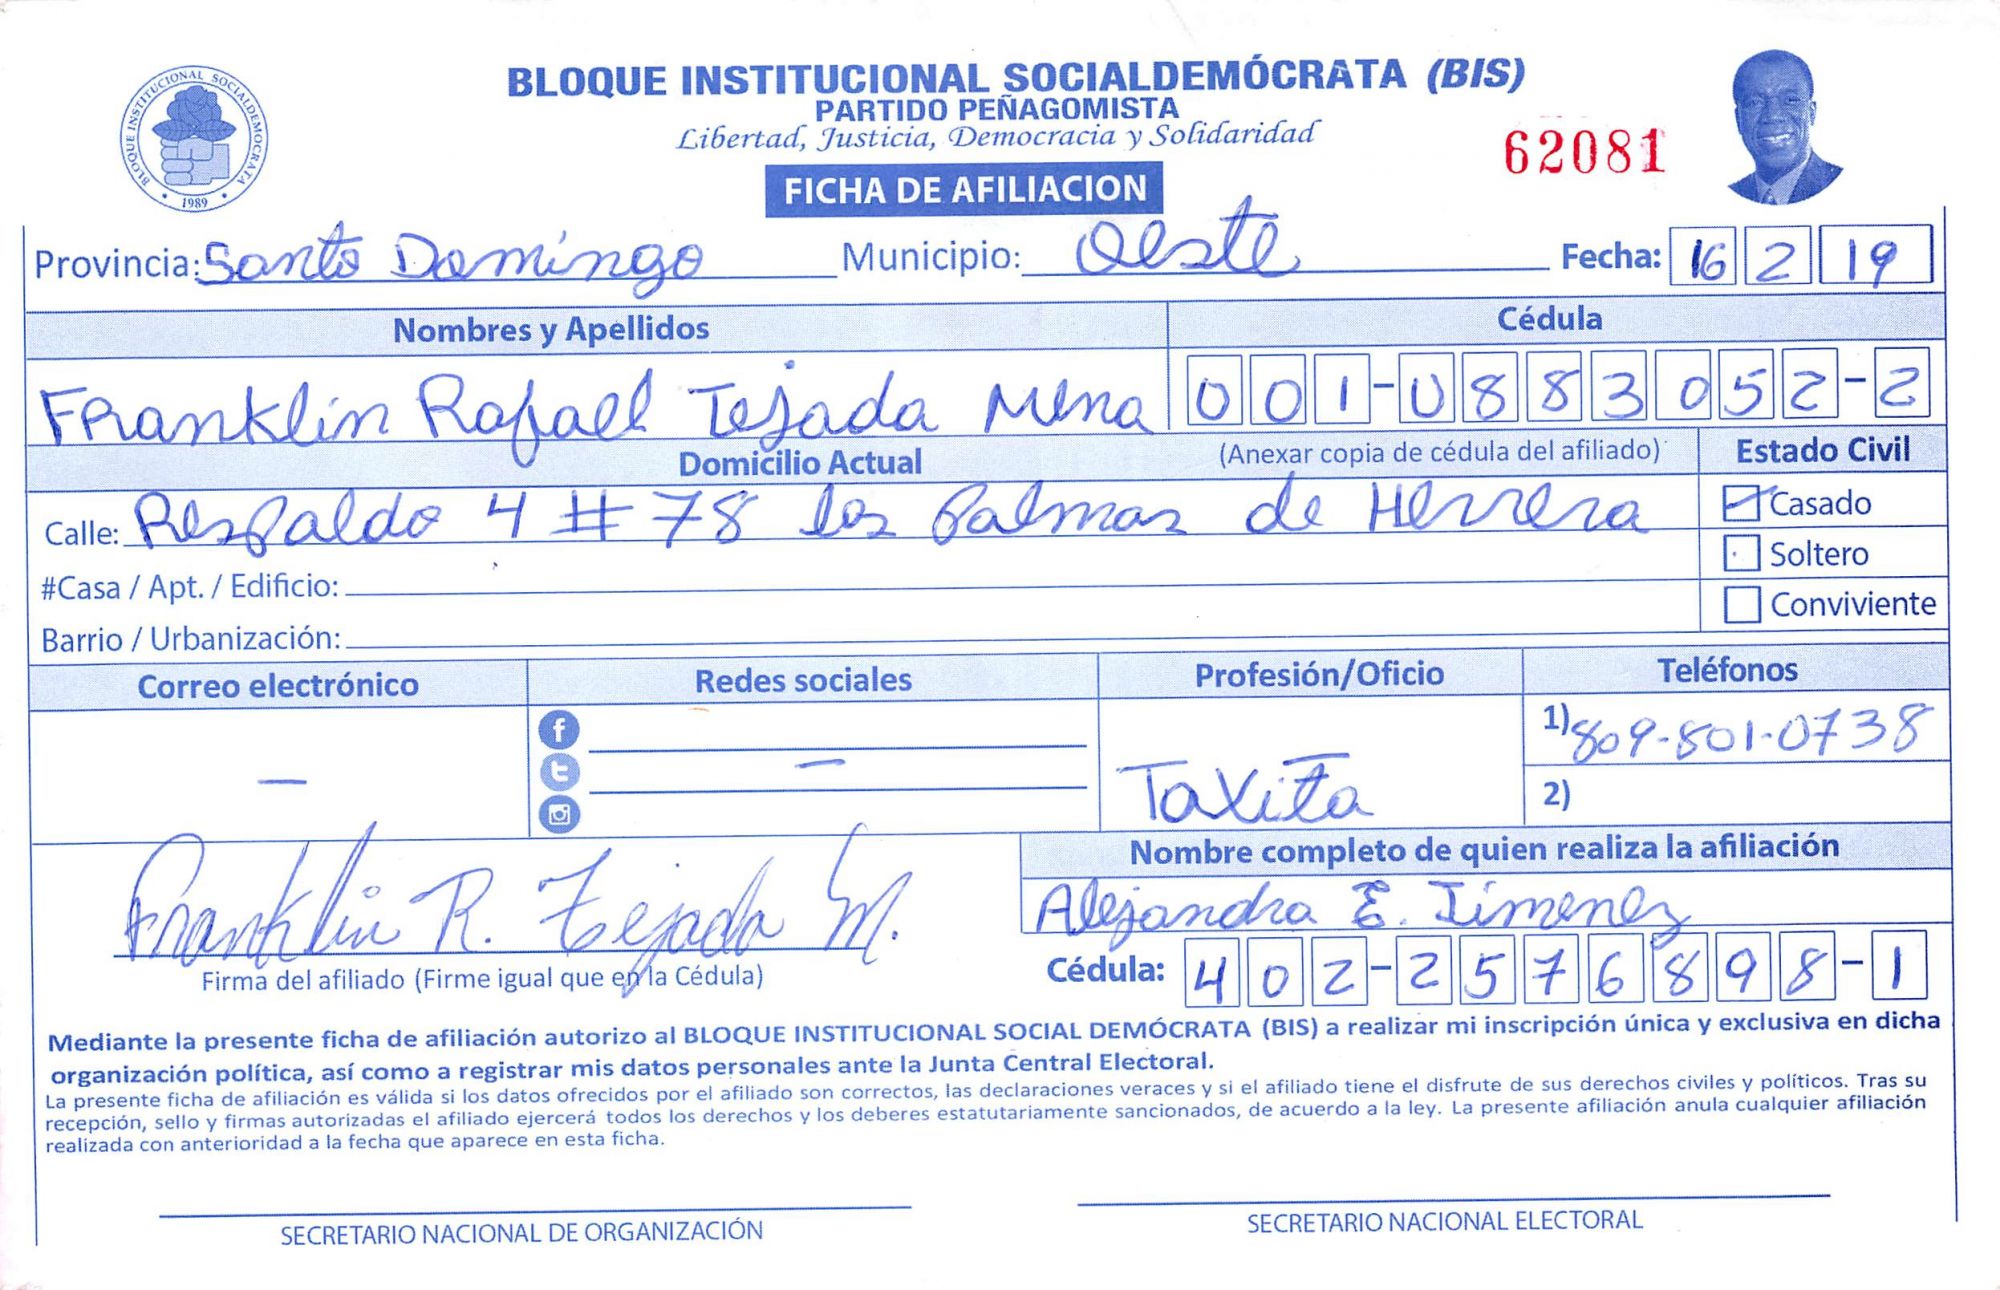 BLOQUE INSTITUCIONAL SOCIALDEMÓCRATA
1989
BLOQUE INSTITUCIONAL SOCIALDEMÓCRATA (BIS)
PARTIDO PEÑAGOMISTA
Libertad, Justicia, Democracia y Solidaridad
62081
FICHA DE AFILIACION
Provincia: Santo Domingo Municipio: Oeste Fecha: 16 2 19
Nombres y Apellidos Cédula
Franklin Rafael Tejada Mena 001-0883052-2
Domicilio Actual (Anexar copia de cédula del afiliado) Estado Civil
Calle: Respaldo 4 # 78 las Palmas de Herrera Casado
Soltero
#Casa / Apt. / Edificio:
Conviviente
Barrio / Urbanización:
Correo electrónico Redes sociales Profesión/Oficio Teléfonos
1) 809-801-0738
— — Taxita
2)
Nombre completo de quien realiza la afiliación
Franklin R. Tejada M. Alejandra E. Jimenez
Firma del afiliado (Firme igual que en la Cédula) Cédula: 402-2576898-1
Mediante la presente ficha de afiliación autorizo al BLOQUE INSTITUCIONAL SOCIAL DEMÓCRATA (BIS) a realizar mi inscripción única y exclusiva en dicha
organización política, así como a registrar mis datos personales ante la Junta Central Electoral.
La presente ficha de afiliación es válida si los datos ofrecidos por el afiliado son correctos, las declaraciones veraces y si el afiliado tiene el disfrute de sus derechos civiles y políticos. Tras su
recepción, sello y firmas autorizadas el afiliado ejercerá todos los derechos y los deberes estatutariamente sancionados, de acuerdo a la ley. La presente afiliación anula cualquier afiliación
realizada con anterioridad a la fecha que aparece en esta ficha.
SECRETARIO NACIONAL DE ORGANIZACIÓN SECRETARIO NACIONAL ELECTORAL